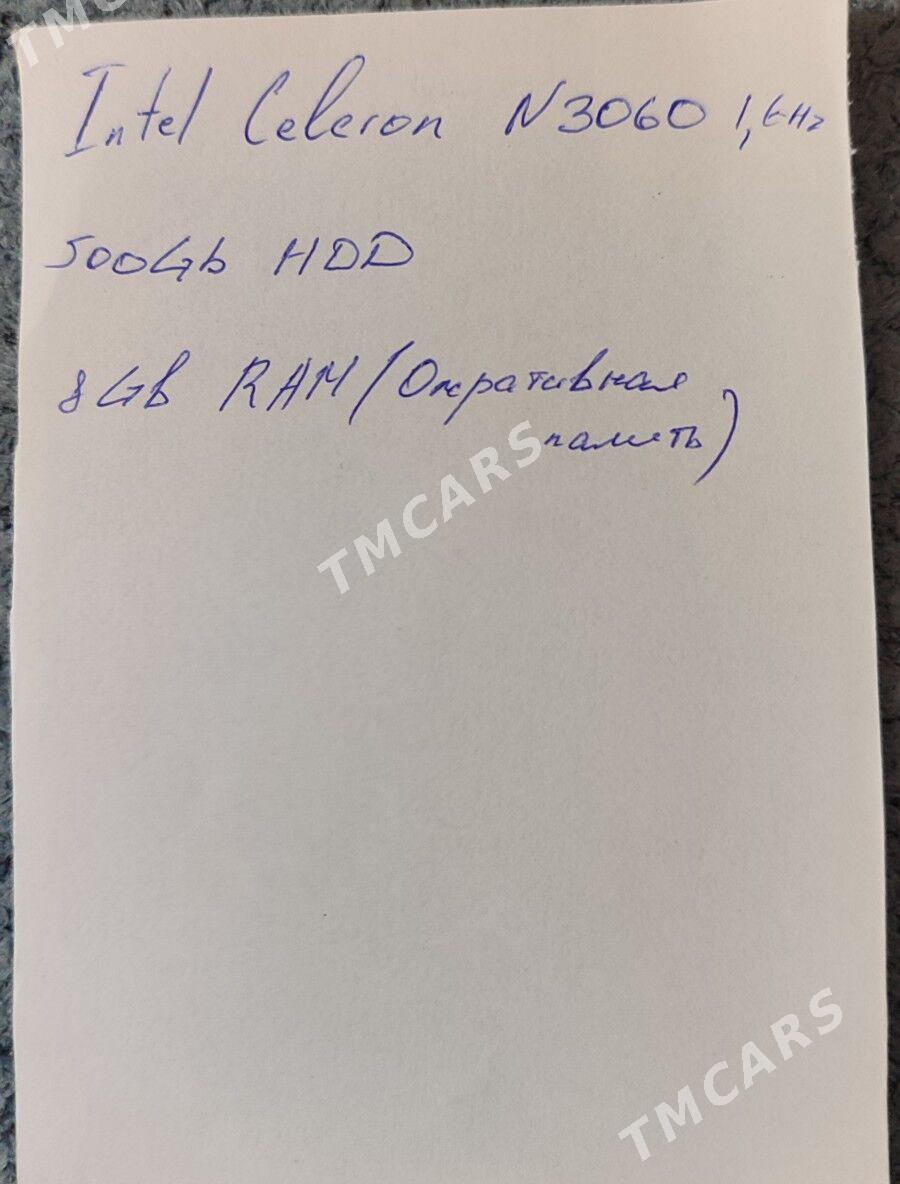 TMCARS
Intel Celeron N3060 1,6Hz
500Gb HDD
8Gb RAM (Оперативная
память)
TMCARS
TMCARS